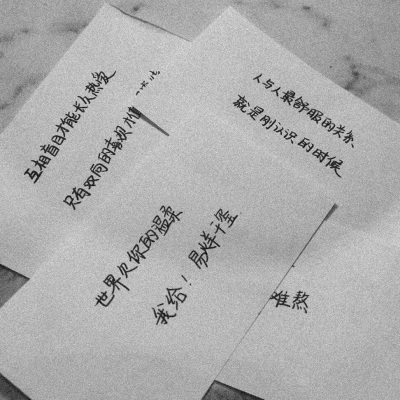 互相盲目才能长久热爱
只有双向的喜欢
人与人最舒服的关系
就是刚认识的时候
世界欠你的温柔
我给！易烊千玺
难熬